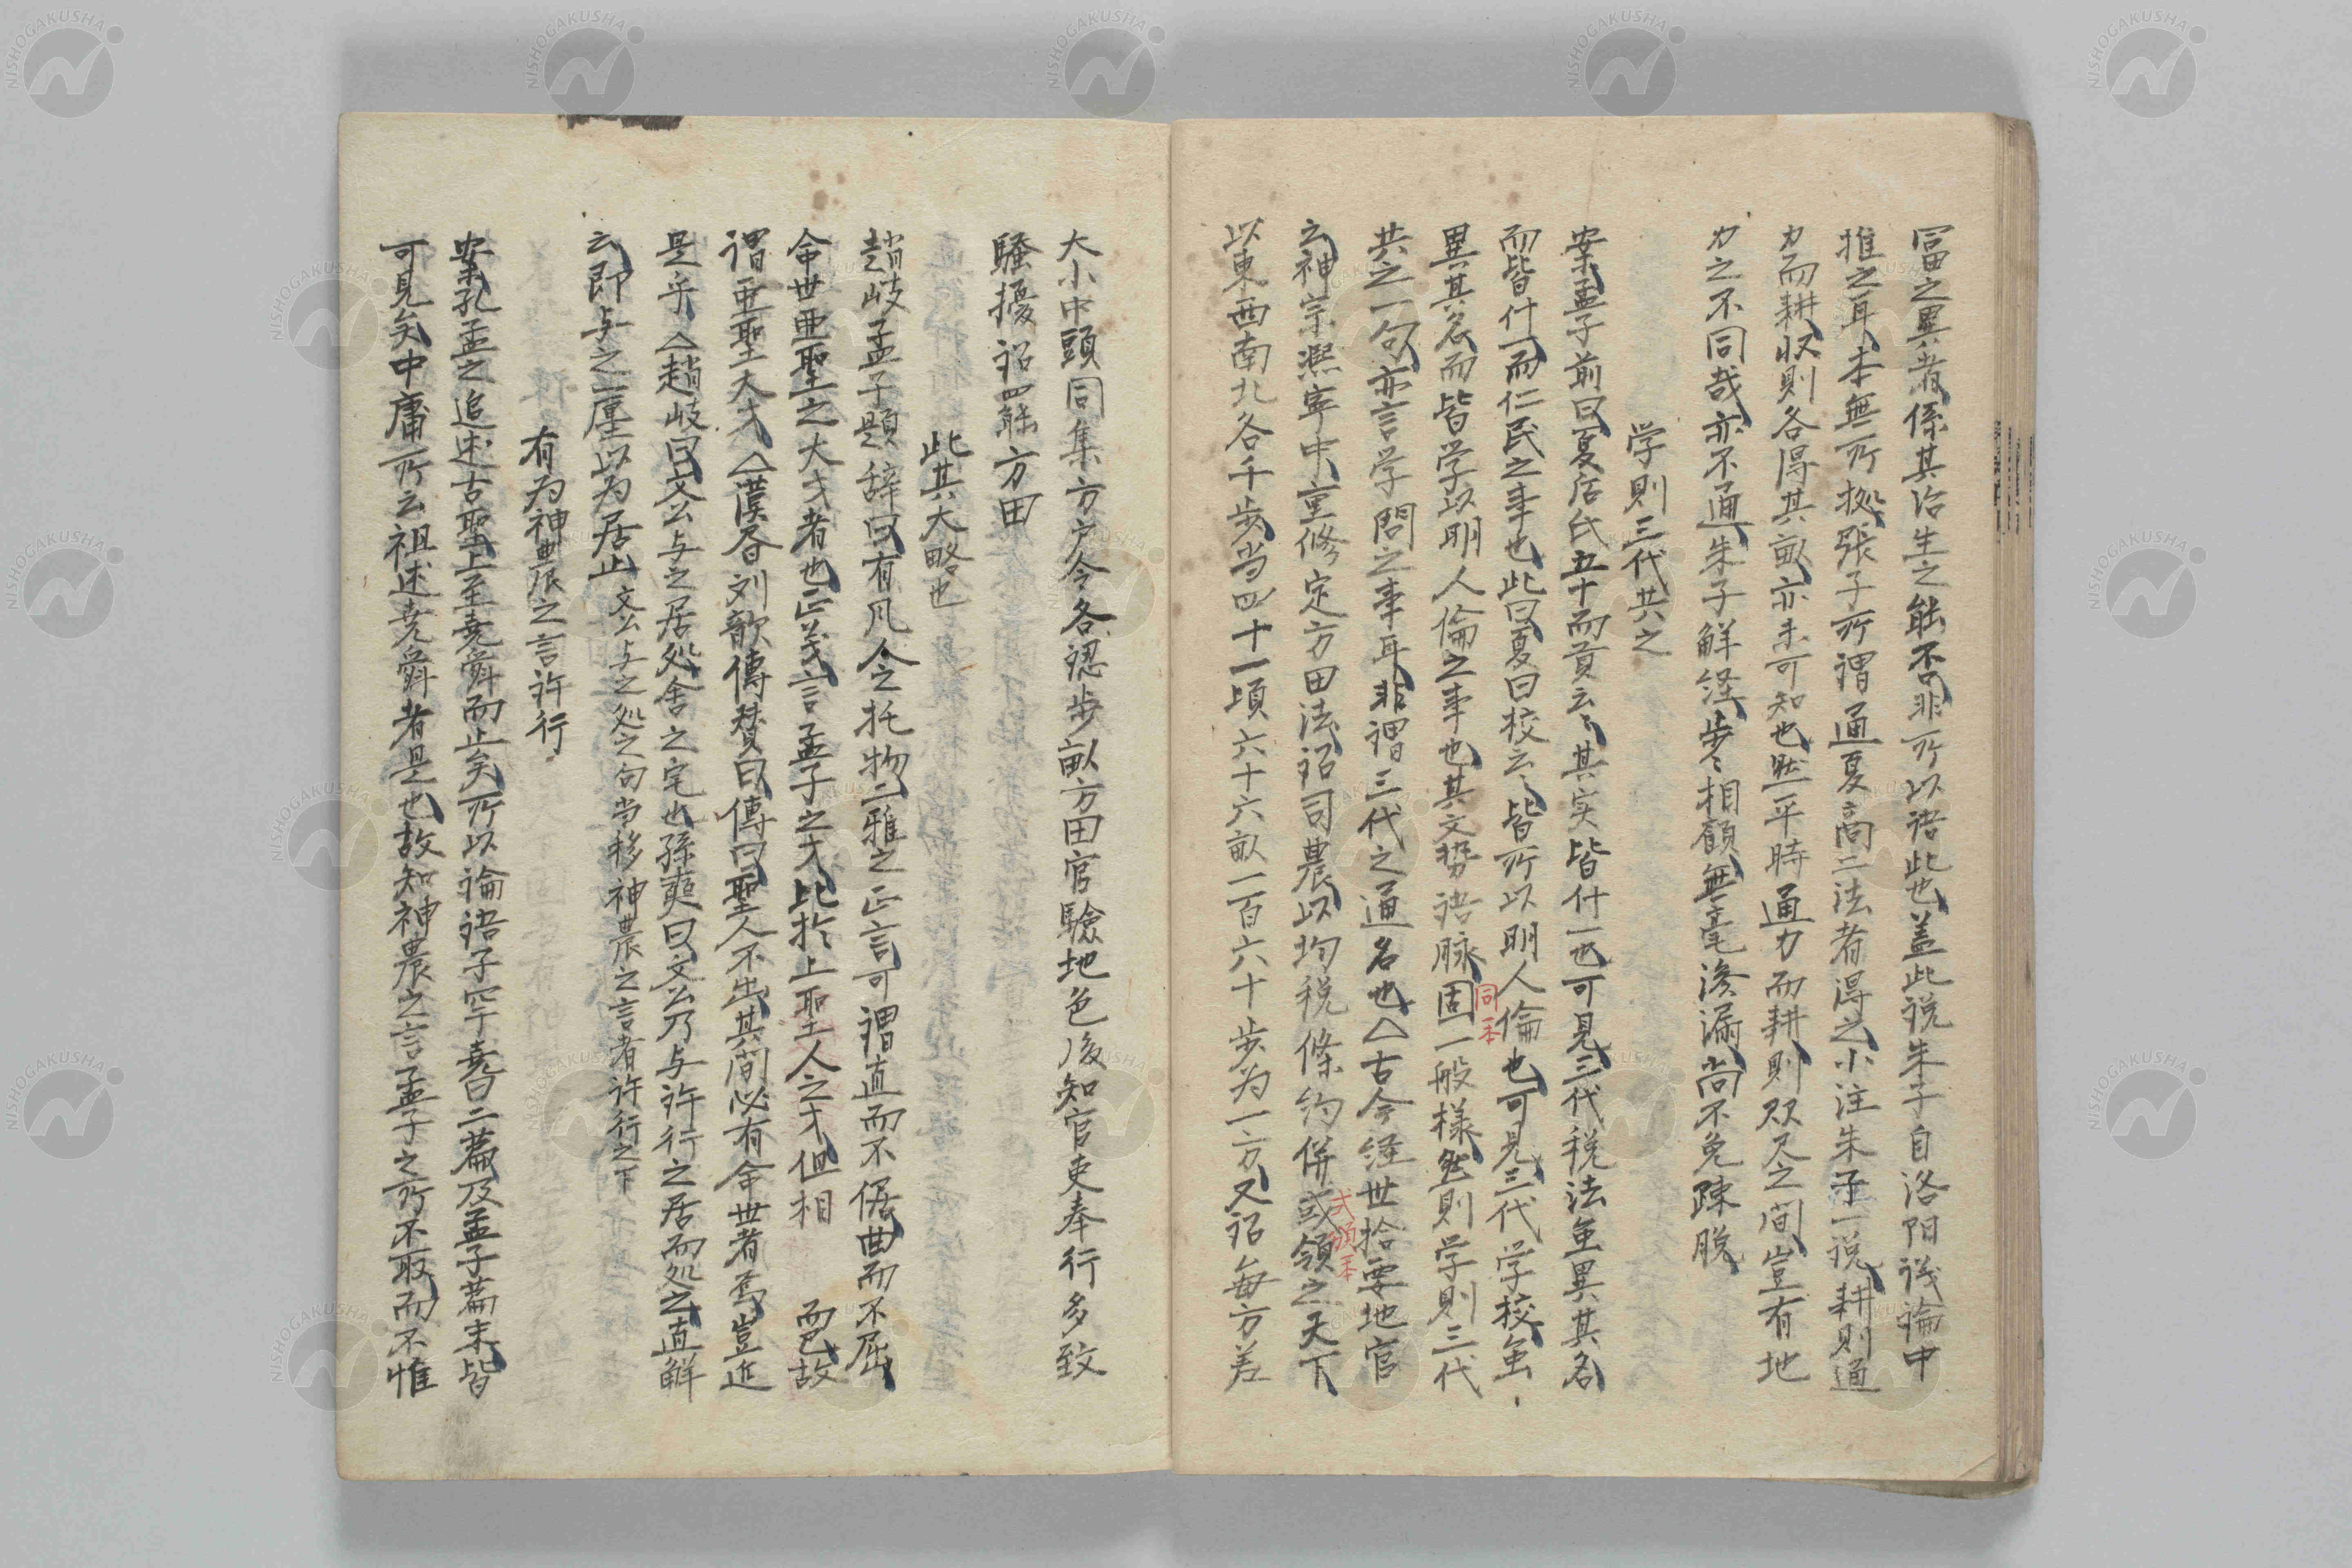 冨之異者係其治生之能否非所以語此也盖此説朱子自洛阳议論中
推之耳本無所拠張子所謂通夏商二法者得之小注朱子一説耕則通
力而耕収則各得其畝亦未可知也然平時通力而耕則双叉之間豈有地
力之不同哉亦不通朱子解経歩〻相顧無毫滲漏尚不免疎脱
学則三代共之
案孟子前曰夏后氏五十而貢云〻其实皆什一也可見三代税法虽異其名
而皆什一而仁民之事也此曰夏曰校云〻皆所以明人倫也可見三代学校虽
異其名而皆学以明人倫之事也其文势語脉固一般様然則学則三代
同本
共之一句亦言学問之事耳非謂三代之通名也△古今経世拾要地官
云神宗熈寧中重修定方田法詔司農以均税條約併或領之天下
式頒本
以東西南北各千歩当四十一頃六十六畝一百六十歩为一方又詔每方差
大小中頭同集方户令各認歩畝方田官驗地色後知官吏奉行多致
騷擾詔罷方田
此其大略也
趙岐孟子題辞曰有凡今之托物二雅之正言可謂直而不倨曲而不屈
命世亜聖之大才者也正義言孟子之才比於上聖人之才但相 而已故
謂亜聖大才△漢眘刘歆傳賛曰傳曰聖人不出其間必有命世者焉豈近
是乎△趙岐曰文公与之居処舍之宅也孫奭曰文公乃与許行之居而処之直解
云即与之一厘以为居止 文公与之処之句当移神農之言者許行之下
有为神農之言許行
案孔孟之追述古聖上至堯舜而止矣所以論語子罕堯曰二篇及孟子篇末皆
可見矣中庸所云祖述堯舜者是也故知神農之言孟子之所不取而不惟